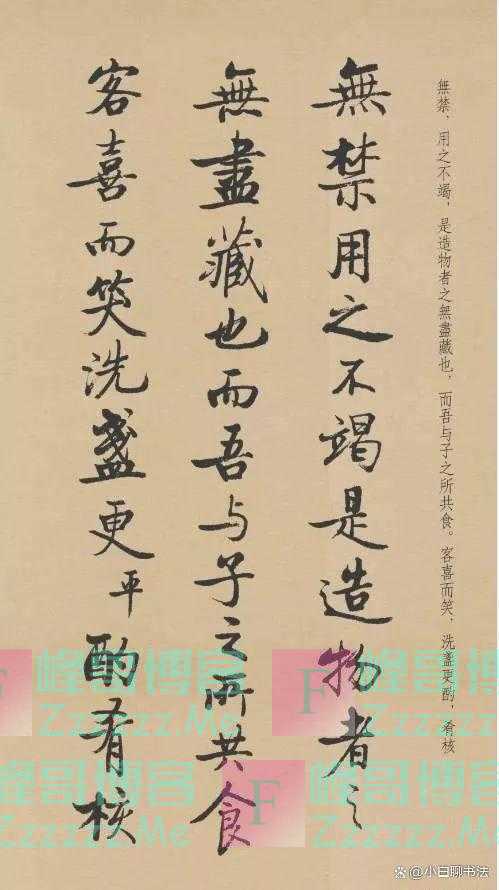 無禁、用之不竭，是造物者之無盡藏也，而吾与子之所共食。客喜而笑，洗盞更酌，肴核
無禁用之不竭是造物者之
無盡藏也而吾与子之所共食
客喜而笑洗盞更平酌肴核
峰哥博客
Zzzzzz.Me
F
峰哥博客
Zzzzzz.Me
F
@小白聊书法